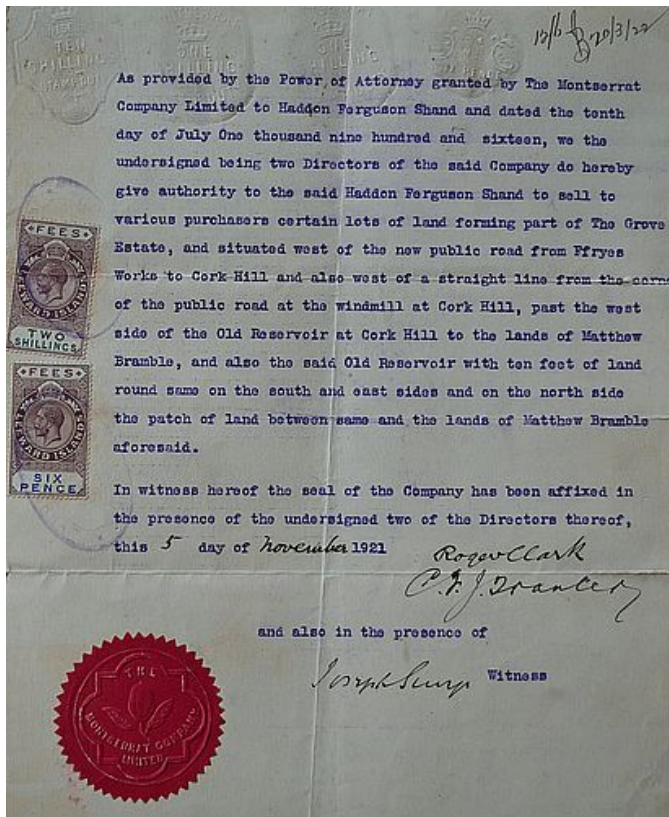 TEN
SHILLING
ONE
SHILLING
ONE
SHILLING
20/3/22
As provided by the Power of Attorney granted by The Montserrat
Company Limited to Haddon Ferguson Shand and dated the tenth
day of July One thousand nine hundred and sixteen, we the
undersigned being two Directors of the said Company do hereby
give authority to the said Haddon Ferguson Shand to sell to
various purchasers certain lots of land forming part of The Grove
Estate, and situated west of the new public road from Ffryes
Works to Cork Hill and also west of a straight line from the corne
of the public road at the windmill at Cork Hill, past the west
side of the Old Reservoir at Cork Hill to the lands of Matthew
Bramble, and also the said Old Reservoir with ten feet of land
round same on the south and east sides and on the north side
the patch of land between same and the lands of Matthew Bramble
aforesaid.
FEES
LEEWARD ISLANDS
TWO
SHILLINGS
FEES
LEEWARD ISLANDS
SIX
PENCE
In witness hereof the seal of the Company has been affixed in
the presence of the undersigned two of the Directors thereof,
this 5 day of November 1921
Roger Clark
and also in the presence of
Joseph Witness
THE
MONTSERRAT COMPANY
LIMITED